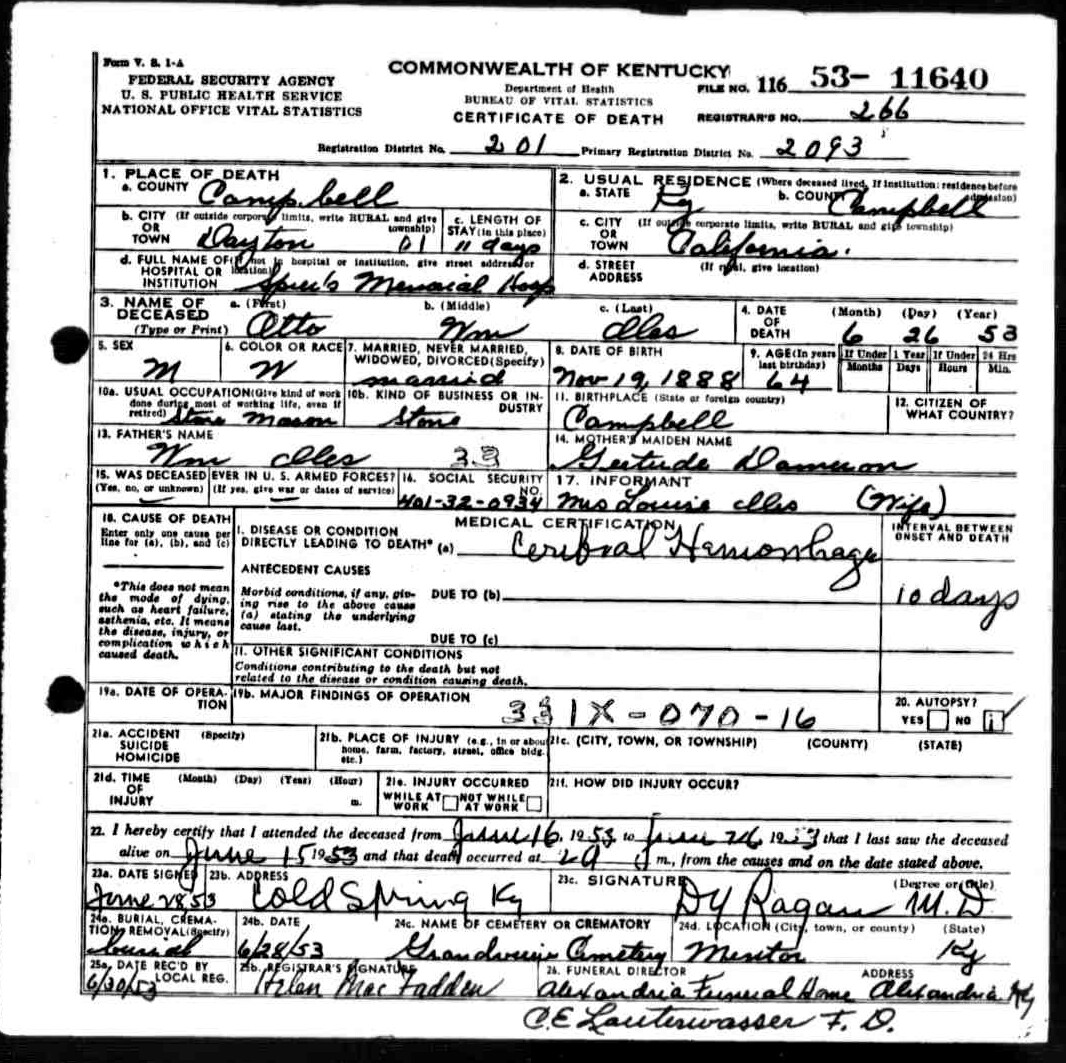 Form V. S. 1-A
FEDERAL SECURITY AGENCY
U. S. PUBLIC HEALTH SERVICE
NATIONAL OFFICE VITAL STATISTICS
COMMONWEALTH OF KENTUCKY
Department of Health
BUREAU OF VITAL STATISTICS
CERTIFICATE OF DEATH
FILE NO. 116 53- 11640
REGISTRAR'S NO. 266
Registration District No. 201 Primary Registration District No. 2093
1. PLACE OF DEATH
a. COUNTY Campbell
2. USUAL RESIDENCE (Where deceased lived. If institution: residence before admission)
a. STATE Ky b. COUNTY Campbell
b. CITY (If outside corporate limits, write RURAL and give township)
OR
TOWN Dayton 01
c. LENGTH OF STAY (in this place)
11 days
c. CITY (If outside corporate limits, write RURAL and give township)
OR
TOWN California.
d. FULL NAME OF (If not in hospital or institution, give street address or location)
HOSPITAL OR
INSTITUTION Speer's Memorial Hosp
d. STREET ADDRESS (If rural, give location)
3. NAME OF DECEASED
(Type or Print)
a. (First) b. (Middle) c. (Last)
Otto Wm Iles
4. DATE OF DEATH (Month) (Day) (Year)
6 26 53
5. SEX
M
6. COLOR OR RACE
W
7. MARRIED, NEVER MARRIED, WIDOWED, DIVORCED (Specify)
married
8. DATE OF BIRTH
Nov 19, 1888
9. AGE (In years last birthday)
64
If Under 1 Year If Under 24 Hrs
Months Days Hours Min.
10a. USUAL OCCUPATION (Give kind of work done during most of working life, even if retired)
Stone Mason
10b. KIND OF BUSINESS OR INDUSTRY
Stone
11. BIRTHPLACE (State or foreign country)
Campbell
12. CITIZEN OF WHAT COUNTRY?
13. FATHER'S NAME
Wm Iles 33
14. MOTHER'S MAIDEN NAME
Gertrude Dameron
15. WAS DECEASED EVER IN U. S. ARMED FORCES?
(Yes, no, or unknown) (If yes, give war or dates of service)
16. SOCIAL SECURITY NO.
401-32-0934
17. INFORMANT
Mrs Louise Iles (Wife)
18. CAUSE OF DEATH
Enter only one cause per line for (a), (b), and (c)
MEDICAL CERTIFICATION
INTERVAL BETWEEN ONSET AND DEATH
I. DISEASE OR CONDITION
DIRECTLY LEADING TO DEATH* (a) Cerebral Hemorrhage
10 days
*This does not mean the mode of dying, such as heart failure, asthenia, etc. It means the disease, injury, or complication which caused death.
ANTECEDENT CAUSES
Morbid conditions, if any, giving rise to the above cause (a) stating the underlying cause last.
DUE TO (b)
DUE TO (c)
II. OTHER SIGNIFICANT CONDITIONS
Conditions contributing to the death but not related to the disease or condition causing death.
19a. DATE OF OPERATION
19b. MAJOR FINDINGS OF OPERATION
331X-070-16
20. AUTOPSY?
YES NO
21a. ACCIDENT (Specify)
SUICIDE
HOMICIDE
21b. PLACE OF INJURY (e.g., in or about home, farm, factory, street, office bldg. etc.)
21c. (CITY, TOWN, OR TOWNSHIP) (COUNTY) (STATE)
21d. TIME OF INJURY (Month) (Day) (Year) (Hour) m.
21e. INJURY OCCURRED
WHILE AT WORK NOT WHILE AT WORK
21f. HOW DID INJURY OCCUR?
22. I hereby certify that I attended the deceased from June 16, 1953 to June 26, 1953 that I last saw the deceased
alive on June 15 1953 and that death occurred at 2 a m., from the causes and on the date stated above.
23a. DATE SIGNED
June 28 53
23b. ADDRESS
Cold Spring Ky
23c. SIGNATURE (Degree or title)
DY Ragan M.D.
24a. BURIAL, CREMATION, REMOVAL (Specify)
burial
24b. DATE
6/28/53
24c. NAME OF CEMETERY OR CREMATORY
Grandview Cemetery
24d. LOCATION (City, town, or county) (State)
Mentor Ky
25a. DATE REC'D BY LOCAL REG.
6/30/53
25b. REGISTRAR'S SIGNATURE
Helen MacFadden
26. FUNERAL DIRECTOR ADDRESS
Alexandria Funeral Home Alexandria Ky
C.E. Lauterwasser F. D.